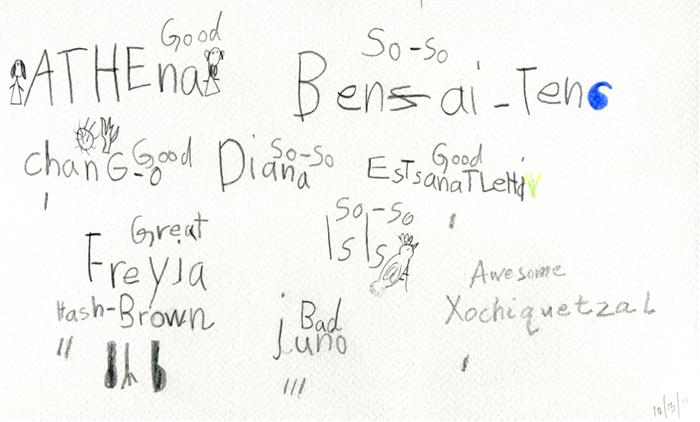 Good
ATHEna
So-So
Bensai-Ten
Good
chanG-o
So-So
Diana
Good
EsTsanaTLeHi
Great
Freyja
So-So
IsIs
Awesome
Xochiquetzal
Hash-Brown
Bad
juno
10/13/11